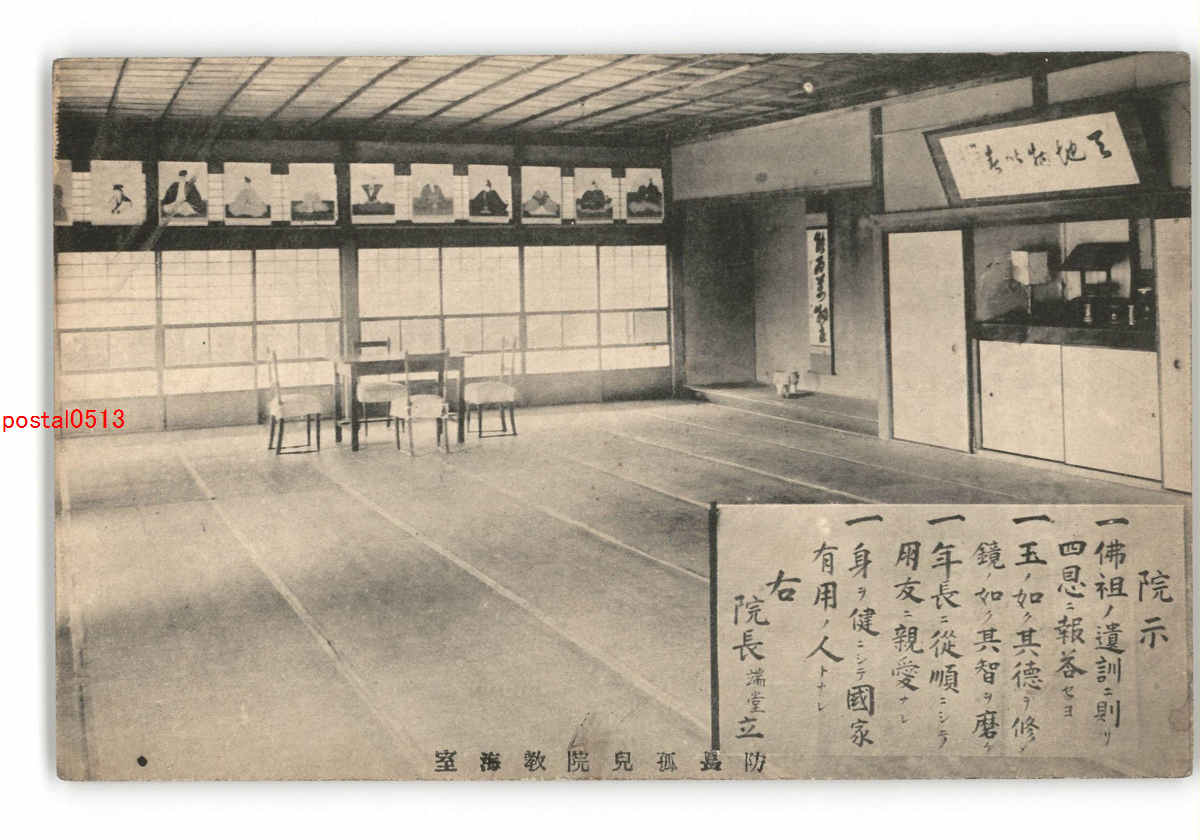 院示
一佛祖ノ遺訓ニ則リ
四恩ニ報荅セヨ
一玉ノ如ク其德ヲ修メ
鏡ノ如ク其智ヲ磨ケ
一年長ニ從順ニシテ
朋友ニ親愛ナレ
一身ヲ健ニシテ國家
有用ノ人トナレ
右
院長端堂立
防長孤兒院教海室
postal0513